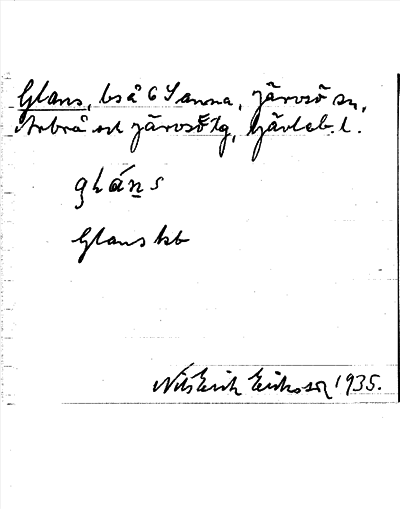 Glans, bs å 6 Sanna, Järvsö sn,
Arbrå och Järvsö tg, Gävleb. l.
gláns
Glans kb
Nils Erik Eriksson 1935.